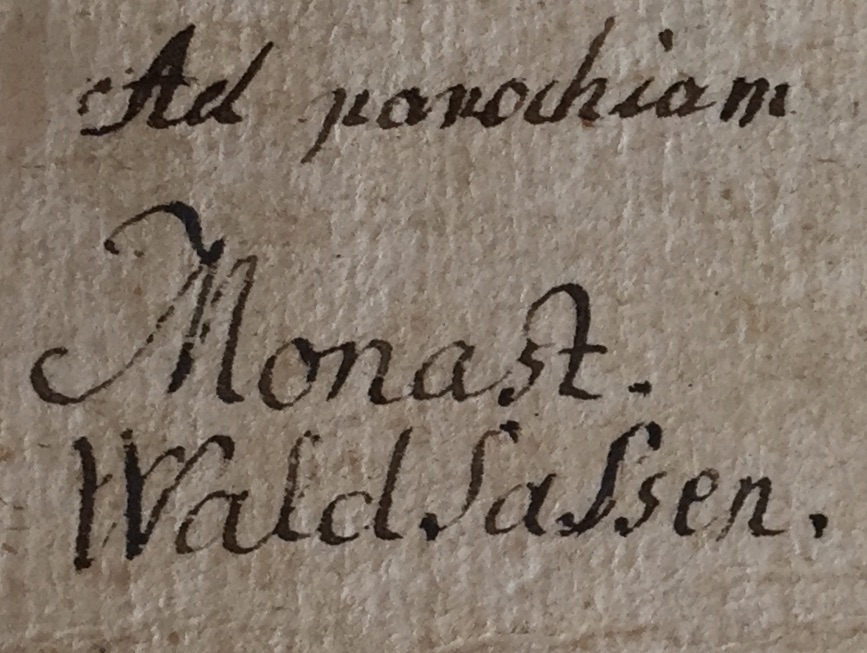 Ad parochiam
Monast.
Waldsassen.